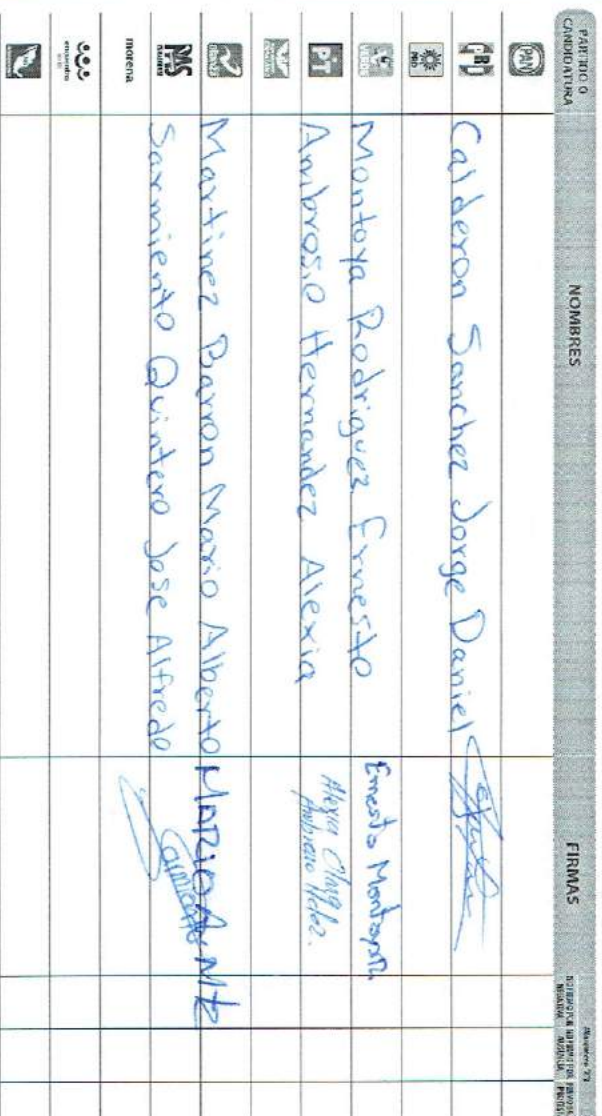 PARTIDO O CANDIDATURA NOMBRES FIRMAS
PAN
PRI Calderon Sanchez Jorge Daniel
PRD
VERDE Montoya Rodriguez Ernesto Ernesto Montoya R.
PT Ambrosio Hernandez Alexia Alexia
Ambrosio Hdez.
Martinez Barron Mario Alberto MARIO A. MTZ
PAS Sarmiento Quintero Jose Alfredo Sarmiento
morena
encuentro